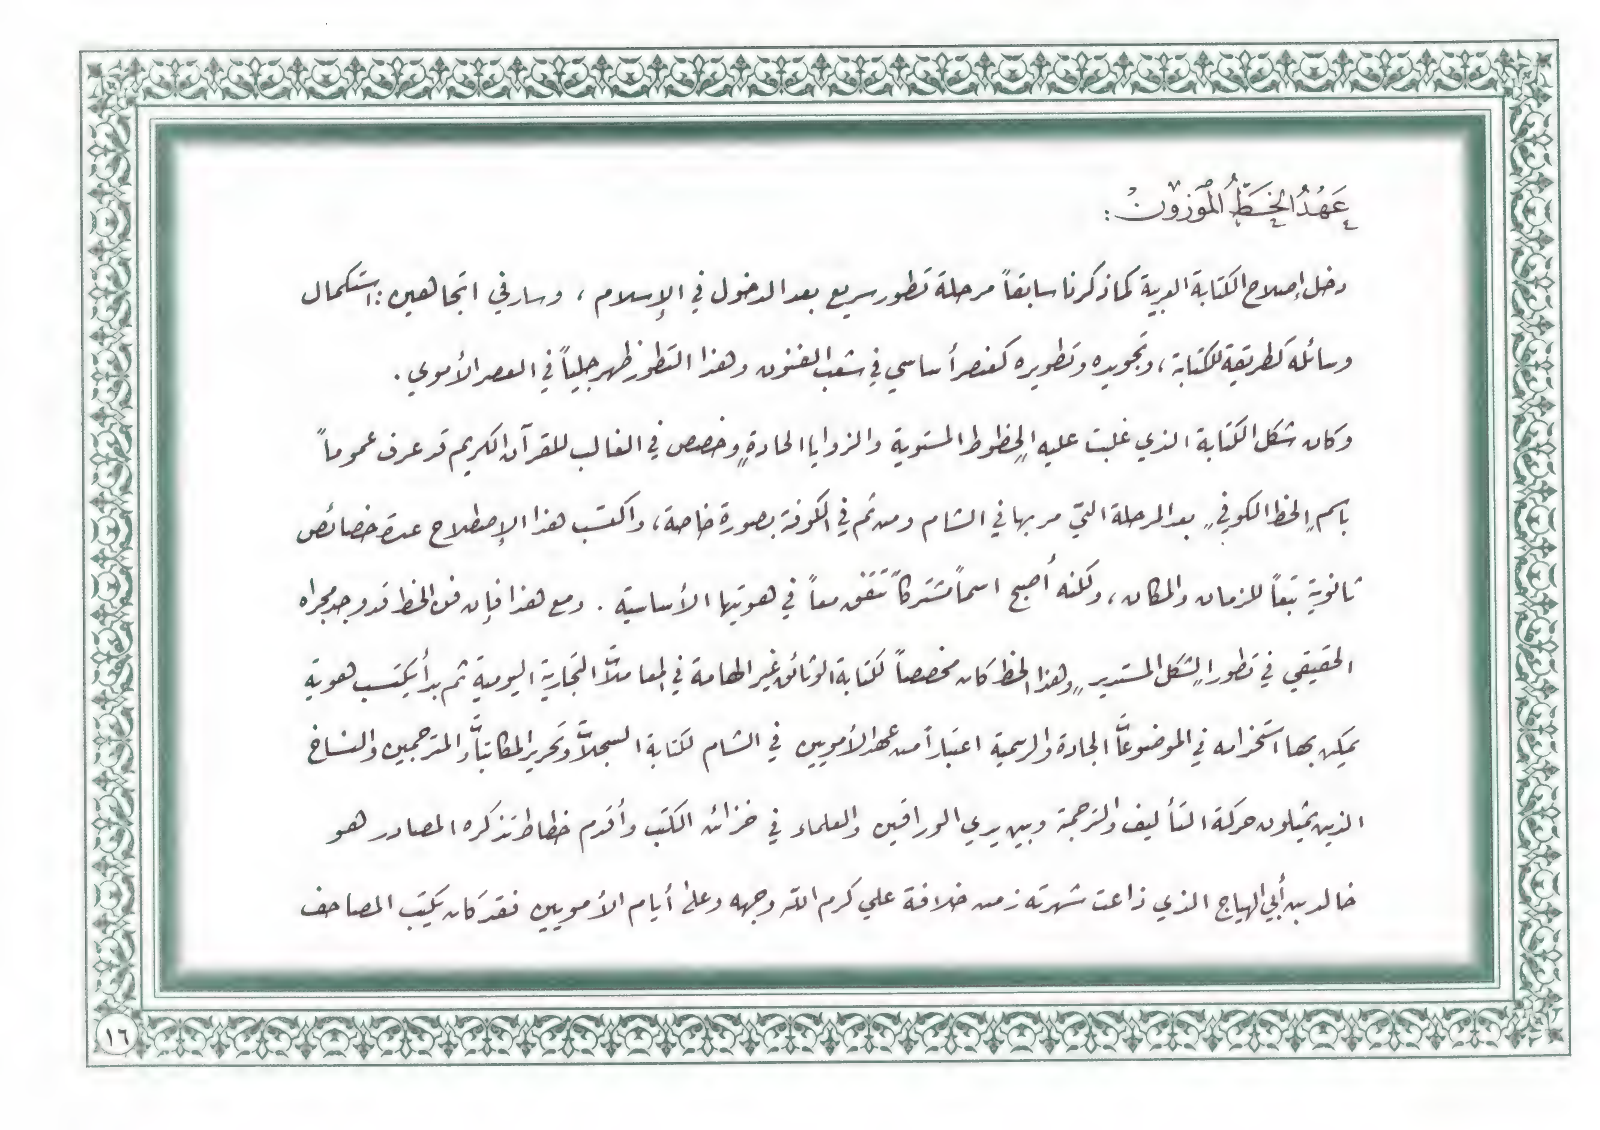 عَهْدُ الخَطِّ الْمَوْزُونْ :
دخل إصلاح الكتابة العربية كما ذكرنا سابقاً مرحلة تطور سريع بعد الدخول في الإسلام ، وسار في اتجاهين : استكمال
وسائله كطريقة للكتابة ، وتجويده وتطويره كعنصر أساسي في شعب الفنون وهذا التطور ظهر جلياً في العصر الأموي .
وكان شكل الكتابة الذي غلبت عليه الخطوط المستوية والزوايا الحادة وخصص في الغالب للقرآن الكريم قد عرف عموماً
باسم "الخط الكوفي" بعد المرحلة التي مر بها في الشام ومن ثم في الكوفة بصورة خاصة ، واكتسب هذا الإصطلاح عدة خصائص
ثانوية تبعاً للزمان والمكان ، ولكنه أصبح اسماً مشتركاً تتفق معاً في هويتها الأساسية . ومع هذا فإن فن الخط قد وجد مجراه
الحقيقي في تطور "الشكل المستدير" وهذا الخط كان مخصصاً لكتابة الوثائق غير الهامة في المعاملات التجارية اليومية ثم بدأ يكتسب هوية
يمكن بها استخدامه في الموضوعات الجادة والرسمية اعتباراً من عهد الأمويين في الشام لكتابة السجلات وتحرير المكاتبات والمترجمين والنساخ
الذين يمثلون حركة التأليف والترجمة وبين يدي الوراقين والعلماء في خزائن الكتب وأقدم خطاط تذكره المصادر هو
خالد بن أبي الهياج الذي ذاعت شهرته زمن خلافة علي كرم الله وجهه وعلى أيام الأمويين فقد كان يكتب المصاحف
١٦